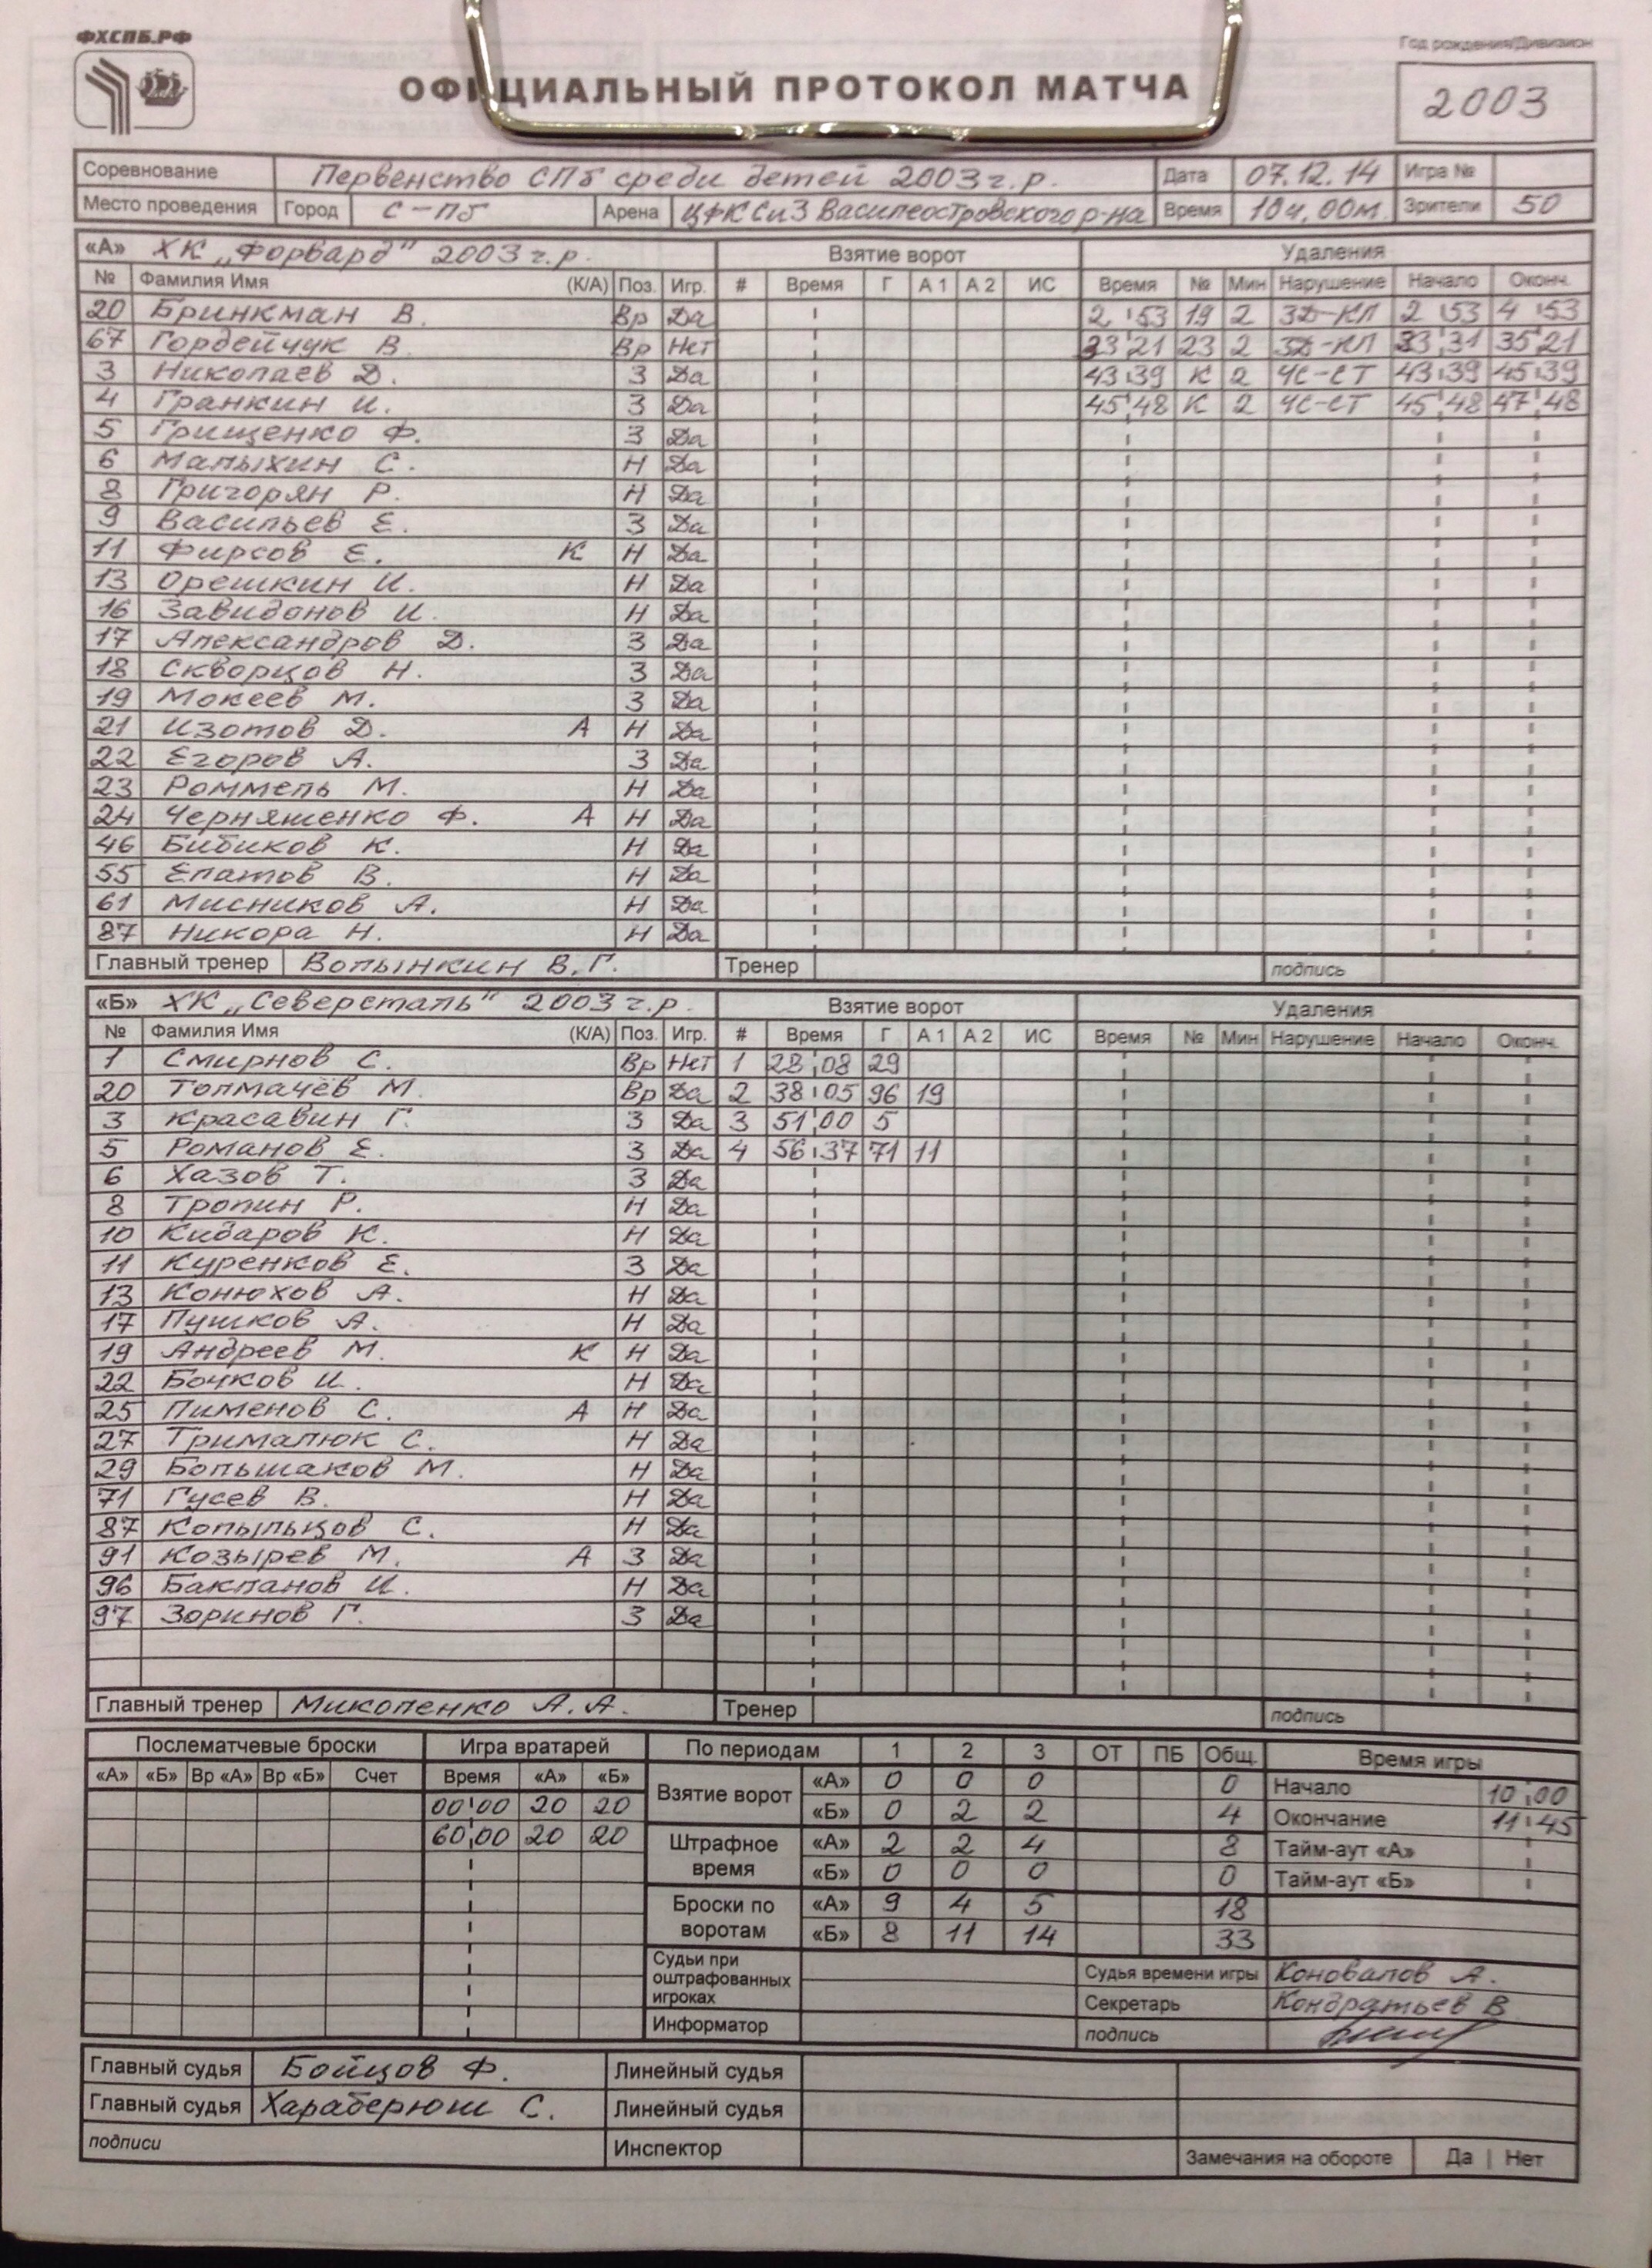 ФХСПБ.РФ
Год рождения/Дивизион
ОФИЦИАЛЬНЫЙ ПРОТОКОЛ МАТЧА
2003
Соревнование Первенство СПб среди детей 2003 г.р. Дата 07.12.14 Игра №
Место проведения Город С-Пб Арена ЦФКСиЗ Василеостровского р-на Время 10ч.00м. Зрители 50
«А» ХК „Форвард" 2003 г.р. Взятие ворот Удаления
№ Фамилия Имя (К/А) Поз. Игр. # Время Г А 1 А 2 ИС Время № Мин Нарушение Начало Оконч.
20 Бринкман В. Вр Да 2 53 19 2 ЗД-КЛ 2 53 4 53
67 Гордейчук В. Вр Нет 33 21 23 2 ЗД-КЛ 33 31 35 21
3 Николаев Д. З Да 43 39 К 2 ЧС-СТ 43 39 45 39
4 Гранкин И. З Да 45 48 К 2 ЧС-СТ 45 48 47 48
5 Грищенко Ф. З Да
6 Малыхин С. Н Да
8 Григорян Р. Н Да
9 Васильев Е. З Да
11 Фирсов Е. К Н Да
13 Орешкин И. Н Да
16 Завидонов И. Н Да
17 Александров Д. З Да
18 Скворцов Н. З Да
19 Мокеев М. З Да
21 Изотов Д. А Н Да
22 Егоров А. З Да
23 Роммель М. Н Да
24 Черняшенко Ф. А Н Да
46 Бибиков К. Н Да
55 Епатов В. Н Да
61 Мисников А. Н Да
87 Никора Н. Н Да
Главный тренер Волынкин В.Г. Тренер подпись
«Б» ХК „Северсталь" 2003 г.р. Взятие ворот Удаления
№ Фамилия Имя (К/А) Поз. Игр. # Время Г А 1 А 2 ИС Время № Мин Нарушение Начало Оконч.
1 Смирнов С. Вр Нет 1 28 08 29
20 Толмачёв М. Вр Да 2 38 05 96 19
3 Красавин Г. З Да 3 51 00 5
5 Романов Е. З Да 4 56 37 71 11
6 Хазов Т. З Да
8 Тропин Р. Н Да
10 Кидаров К. Н Да
11 Куренков Е. З Да
13 Конюхов А. Н Да
17 Пушков А. Н Да
19 Андреев М. К Н Да
22 Бочков И. Н Да
25 Пименов С. А Н Да
27 Трималюк С. Н Да
29 Большаков М. Н Да
71 Гусев В. Н Да
87 Копыльцов С. Н Да
91 Козырев М. А З Да
96 Бакланов И. Н Да
97 Зоринов Г. З Да
Главный тренер Миколенко А.А. Тренер подпись
Послематчевые броски Игра вратарей По периодам 1 2 3 ОТ ПБ Общ. Время игры
«А» «Б» Вр «А» Вр «Б» Счет Время «А» «Б»
Взятие ворот «А» 0 0 0 0 Начало 10 00
00 00 20 20 «Б» 0 2 2 4 Окончание 11 45
60 00 20 20 Штрафное время «А» 2 2 4 8 Тайм-аут «А»
«Б» 0 0 0 0 Тайм-аут «Б»
Броски по воротам «А» 9 4 5 18
«Б» 8 11 14 33
Судьи при оштрафованных игроках Судья времени игры Коновалов А.
Секретарь Кондратьев В
Информатор подпись
Главный судья Бойцов Ф. Линейный судья
Главный судья Хараберюш С. Линейный судья
подписи Инспектор Замечания на обороте Да | Нет